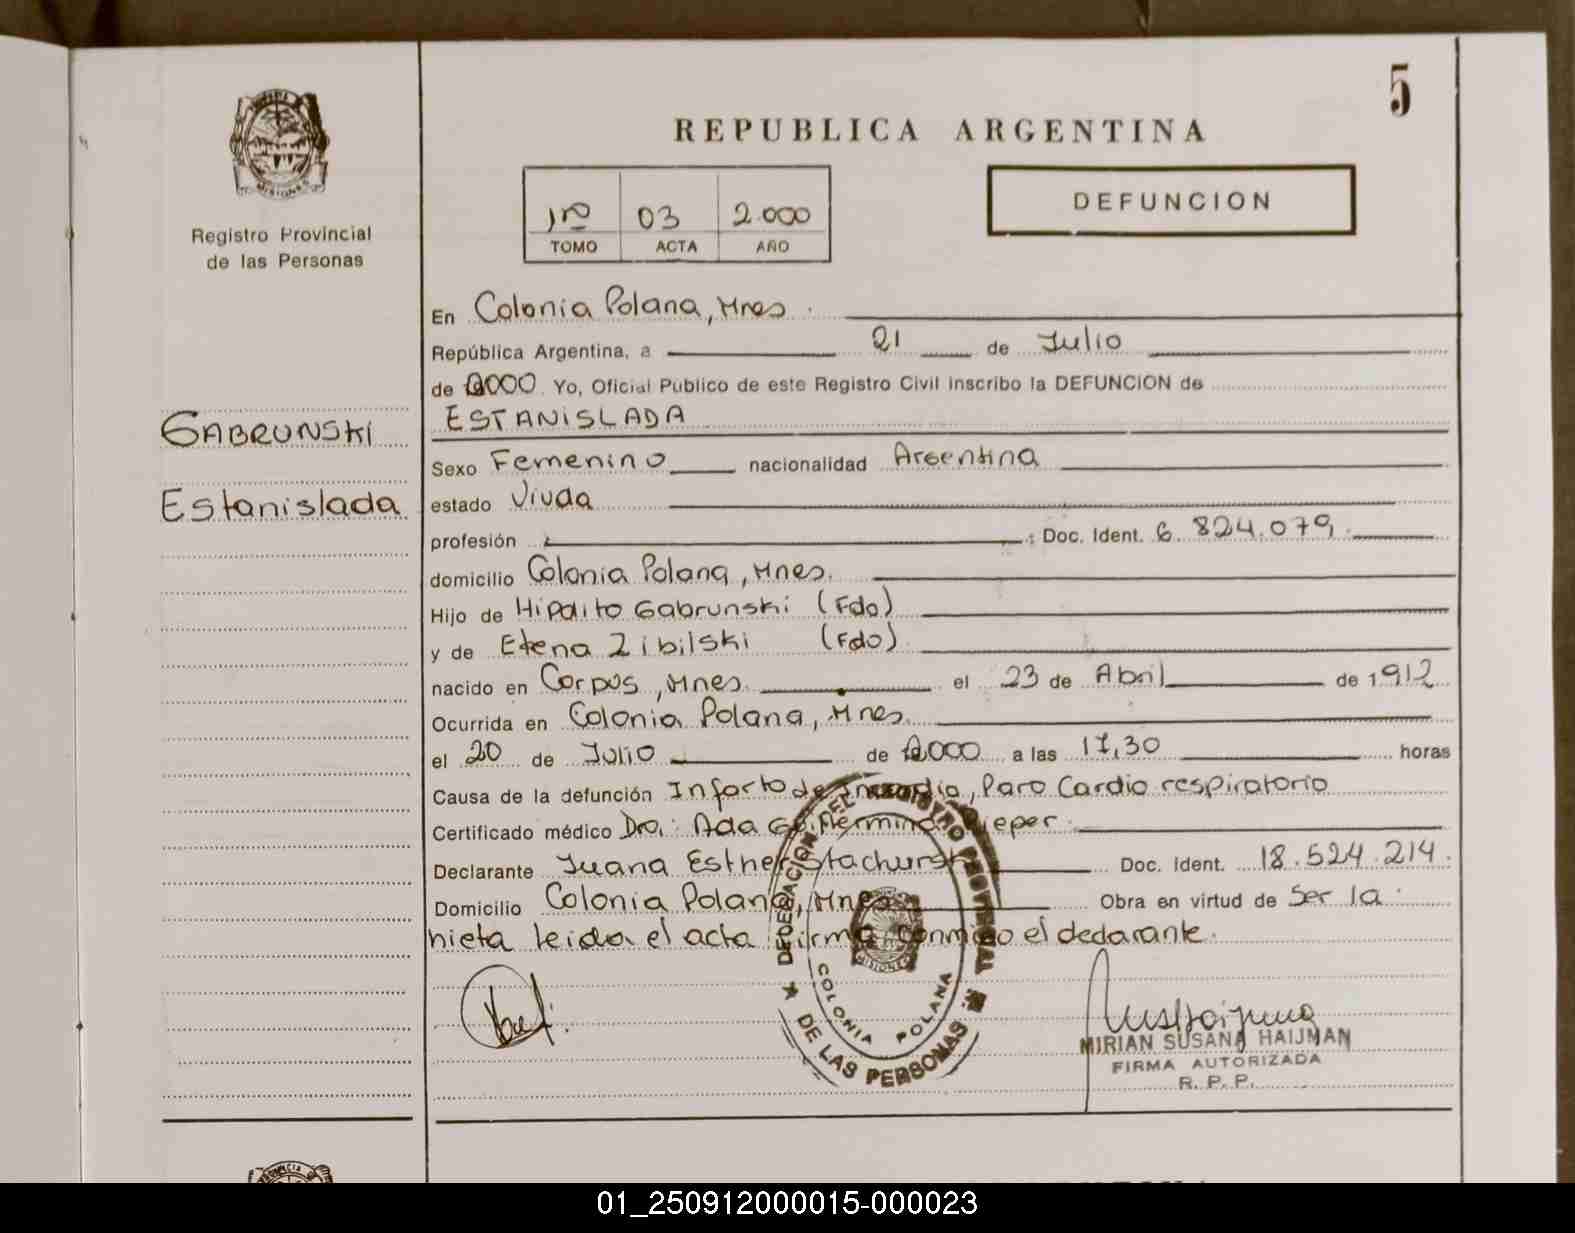 5
REPUBLICA ARGENTINA
DEFUNCION
1ro 03 2.000
TOMO ACTA AÑO
MISIONES
Registro Provincial
de las Personas
GABRUNSKI
Estanislada
En Colonia Polana, Mnes.
República Argentina, a 21 de Julio
de 2000. Yo, Oficial Público de este Registro Civil inscribo la DEFUNCION de
ESTANISLADA
Sexo Femenino nacionalidad Argentina
estado Viuda
profesión : Doc. Ident. 6.824.079.
domicilio Colonia Polana, Mnes.
Hijo de Hipolito Gabrunski (Fdo)
y de Elena Zibilski (Fdo)
nacido en Corpus, Mnes. el 23 de Abril de 1912
Ocurrida en Colonia Polana, Mnes.
el 20 de Julio de 2000 a las 17,30 horas
Causa de la defunción Infarto de , Paro Cardio respiratorio
Certificado médico Dra: Ada Pieper
Declarante Juana Esther Stachurski Doc. Ident. 18.524.214.
Domicilio Colonia Polana, Mnes Obra en virtud de Ser la
nieta leida el acta firma conmigo el declarante.
DELEGACION DEL REGISTRO PROVINCIAL
DE LAS PERSONAS
COLONIA POLANA
MISIONES
MIRIAN SUSANA HAIJMAN
FIRMA AUTORIZADA
R. P. P.
01_250912000015-000023